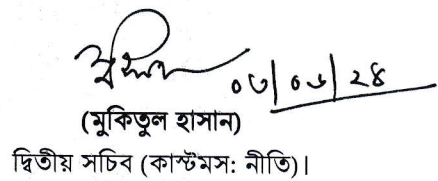 ০৬/০৬/২৪
(মুকিতুল হাসান)
দ্বিতীয় সচিব (কাস্টমস: নীতি)।